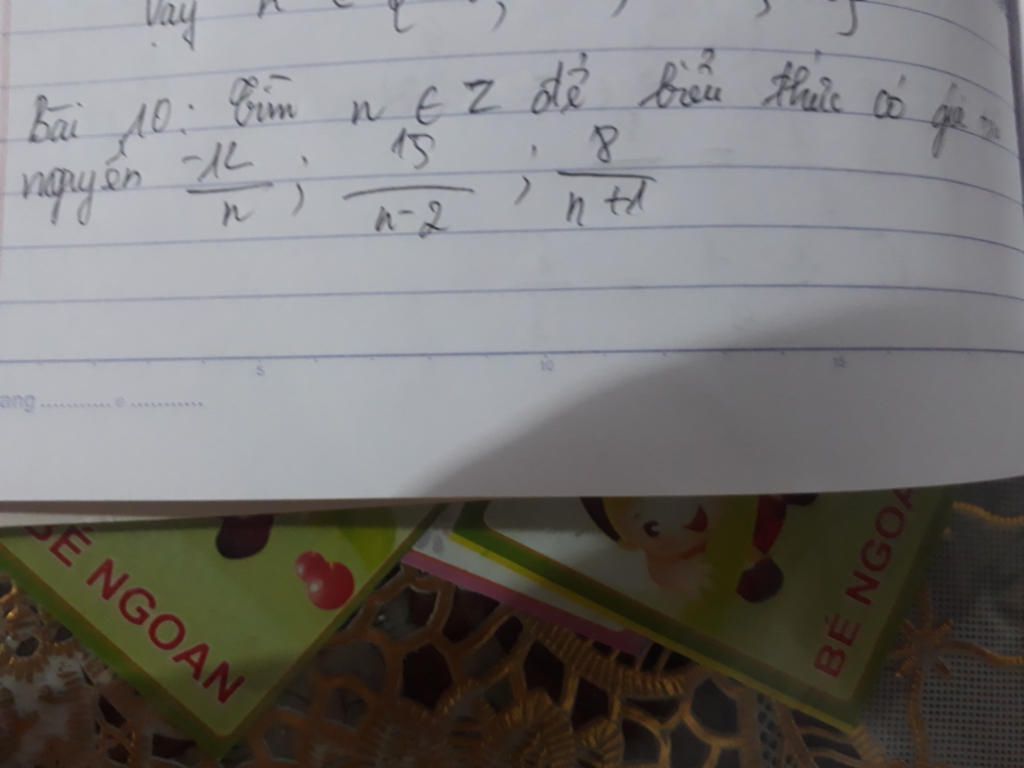 Vậy n ∈ {
Bài 10: Tìm n ∈ Z để biểu thức có giá
nguyên -12/n ; 15/n-2 ; 8/n+1
5 10 15
BÉ NGOAN
BÉ NGOA